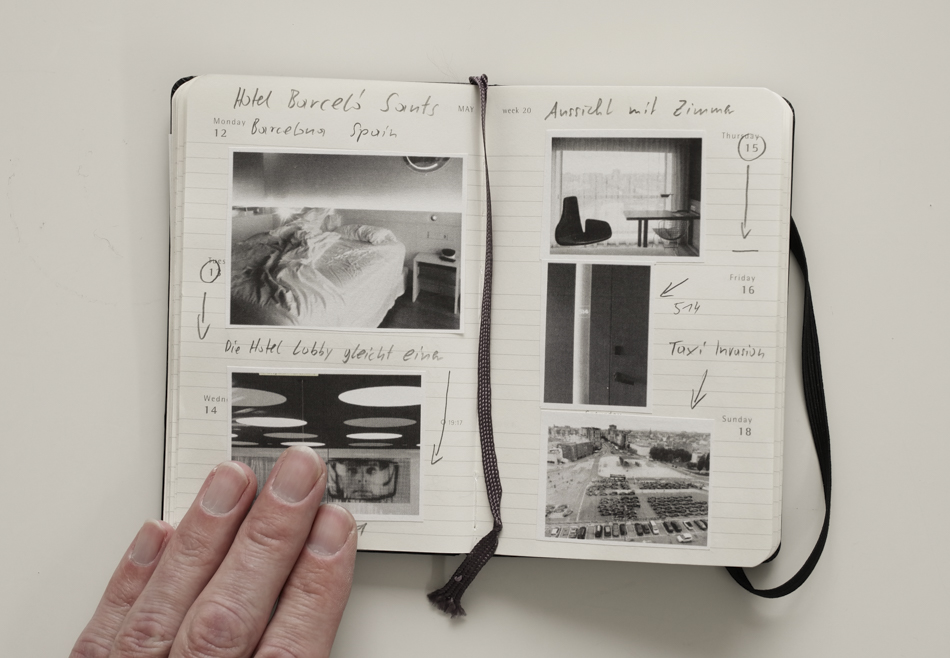 Hotel Barceló Sants
MAY
Monday
12
Barcelona Spain
Tues
1
Die Hotel Lobby gleicht einer
Wedn
14
19:17
week 20
Aussicht mit Zimmer
Thursday
15
Friday
16
514
Taxi Invasion
Sunday
18